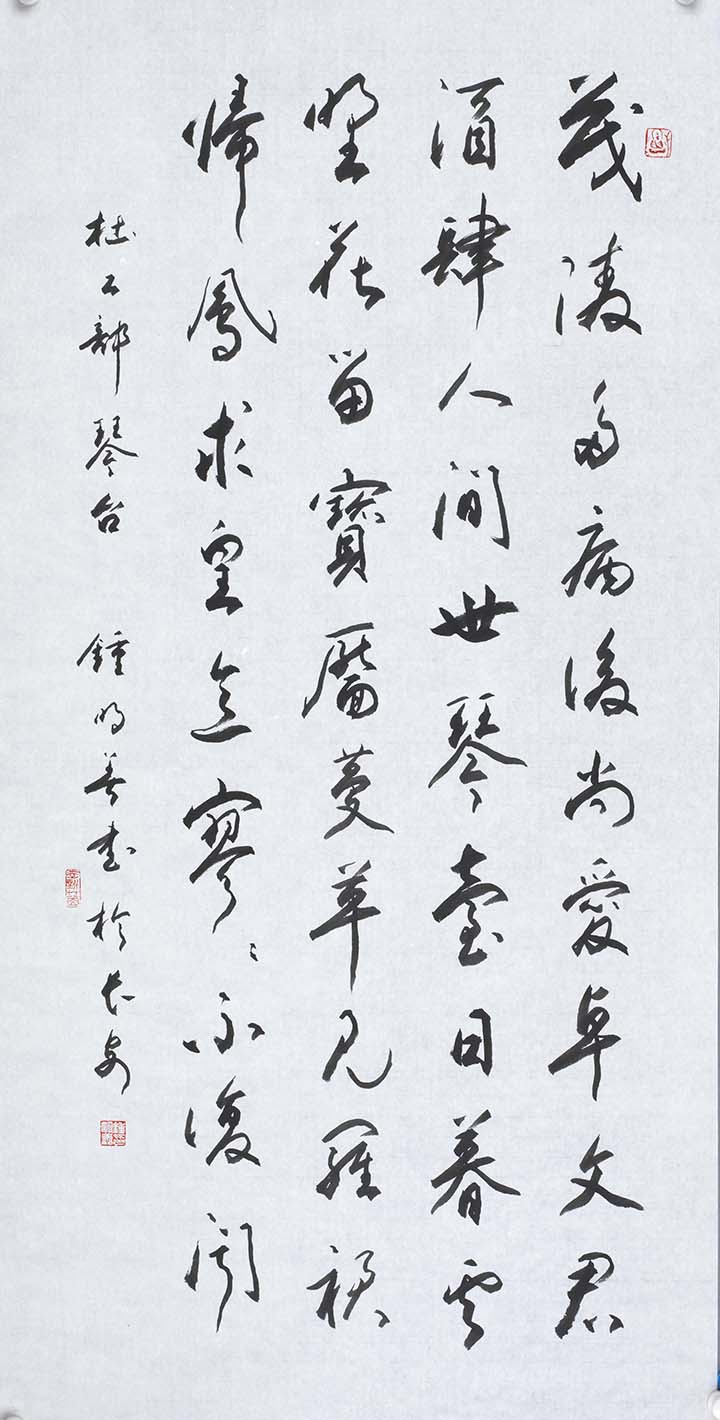 茂陵多病後尚愛卓文君
酒肆人間世琴臺日暮雲
野花留寶靨蔓草見羅裙
歸鳳求皇意寥〻不復聞
杜工部琴台 鍾明善書於長安